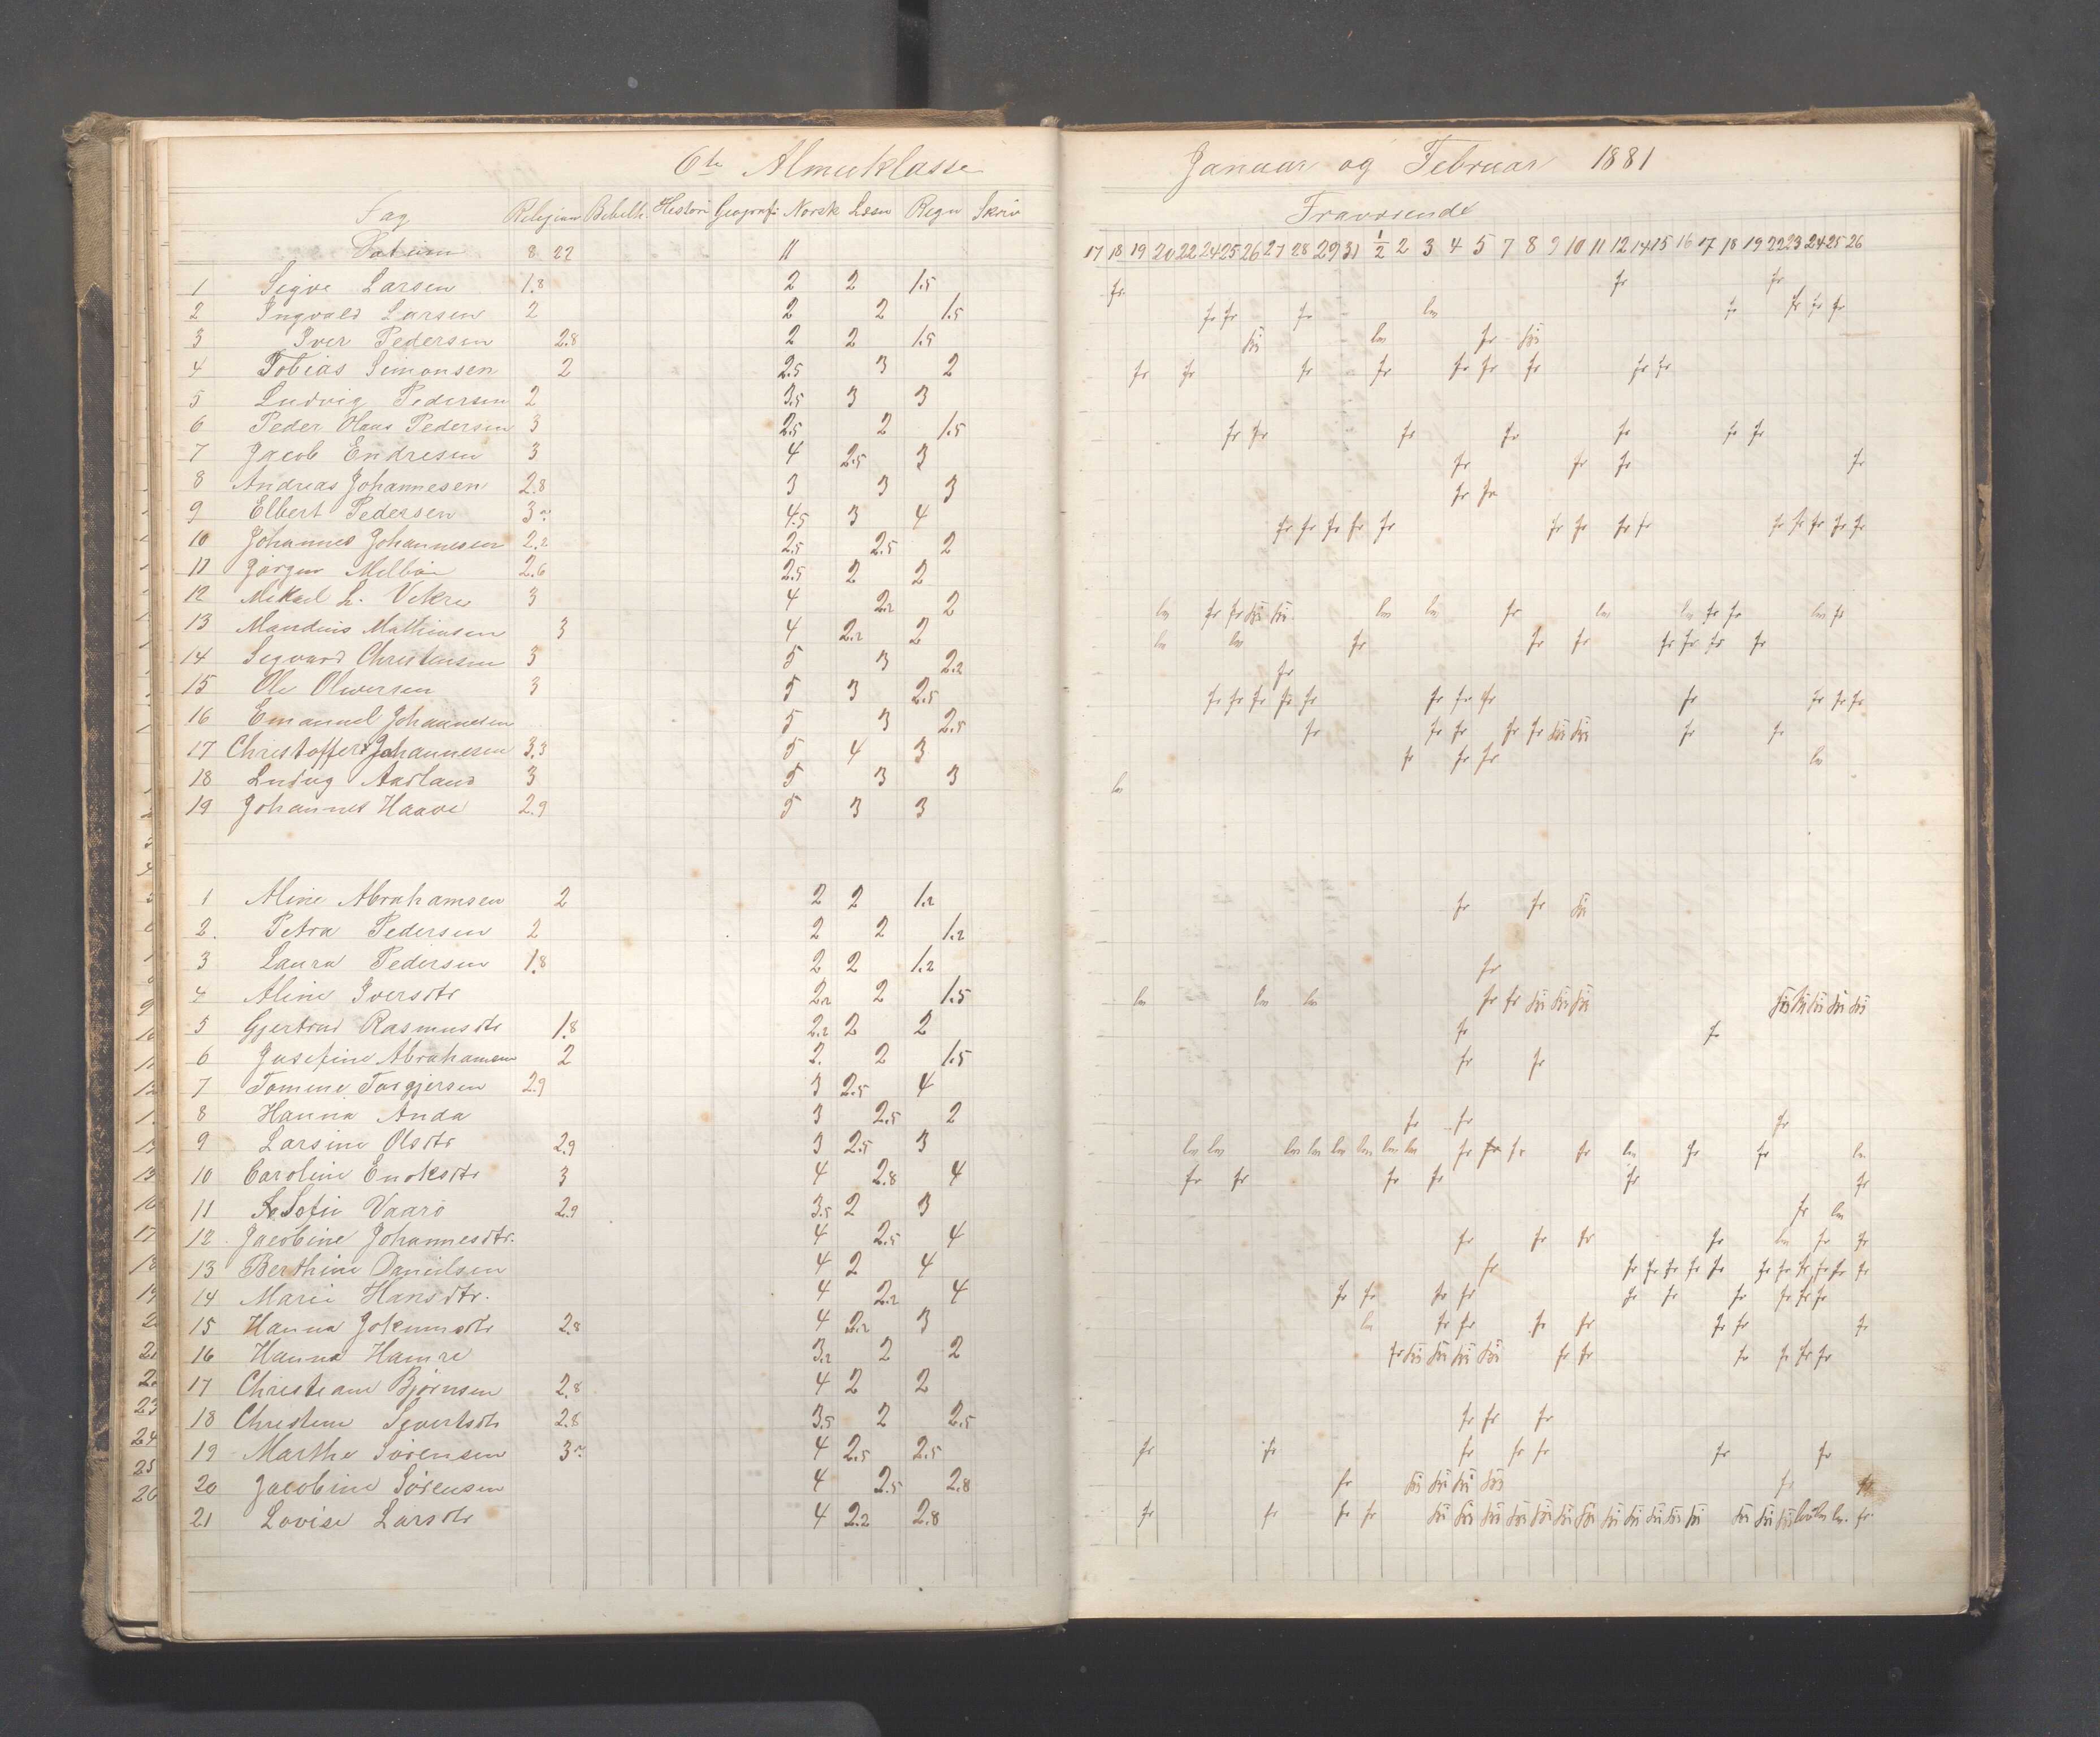 6te Almueklasse
Januar og Februar 1881
Fag Religion Bibelh. Histori Geografi Norsk Læsn Regn Skriv
Fraværende
Datum 8 22 11
17 18 19 20 22 24 25 26 27 28 29 31 1/2 2 3 4 5 7 8 9 10 11 12 14 15 16 17 18 19 22 23 24 25 26
1 Sigve Larsen 1.8 2 2 1.5 fr. fr fr
2 Ingvald Larsen 2 2 2 1.5 fr fr fr lm fr fr fr fr
3 Iver Pedersen 2.8 2 2 1.5 lm fr
4 Tobias Simonsen 2 2.5 3 2 fr fr fr fr fr fr fr fr fr
5 Ludvig Pedersen 2 3.5 3 3
6 Peder Olaus Pedersen 3 2.5 2 1.5 fr fr fr fr fr fr fr
7 Jacob Endresen 3 4 2.5 3 fr fr fr fr
8 Andreas Johannesen 2.8 3 3 3 fr fr
9 Elbert Pedersen 3 4.5 3 4 fr fr fr fr fr fr fr fr fr fr fr fr fr fr
10 Johannes Johannesen 2.2 2.5 2.5 2
11 Jørgen 2.6 2.5 2 2
12 Mikael L. Vikre 3 4 2.2 2 lm fr fr lm lm fr lm lm fr fr lm fr
13 Mandius Mathiasen 3 4 2.2 2 lm lm fr fr fr fr fr fr fr
14 Sigvard Christensen 3 5 3 2.2 fr
15 Ole Oliversen 3 5 3 2.5 fr fr fr fr fr fr fr fr fr fr fr fr
16 Emanuel Johannesen 5 3 2.5 fr fr fr fr fr fr fr
17 Christoffer Johannesen 3.3 5 4 3 fr fr fr lm
18 Ludvig Aadland 3 5 3 3 lm
19 Johannes Haave 2.9 5 3 3
1 Aline Abrahamsen 2 2 2 1.2 fr fr
2. Petra Pedersen 2 2 2 1.2
3 Laura Pedersen 1.8 2 2 1.2 fr
4 Aline Iversdtr 2.2 2 1.5 lm lm lm fr fr
5 Gjertrud Rasmusdtr 1.8 2.2 2 2 fr fr
6 Josefine Abrahamsen 2 2. 2 1.5 fr fr
7 Tomine Torgjersen 2.9 3 2.5 4
8 Hanna Anda 3 2.5 2 fr fr fr
9 Larsine Olsdtr 2.9 3 2.5 3 lm lm lm lm lm lm lm lm fr fr fr fr lm fr fr lm
10 Caroline Enoksdtr 3 4 2.8 4 fr fr fr fr fr fr
11 Sofie Vaarø 2.9 3.5 2 3 fr lm
12. Jacobine Johannesdtr. 4 2.5 4 fr fr fr fr lm fr fr
13 Berthine Danielsen 4 2 4 fr fr fr fr fr fr fr fr fr fr fr fr
14 Marie Hansdtr. 4 2.2 4 fr fr fr fr fr fr fr fr fr fr
15 Hanna Jokumsdtr 2.8 4 2.2 3 lm fr fr fr fr fr fr fr
16 Hanna Hamre 3.2 2 2 fr fr fr fr fr fr fr
17 Christiane Bjørnsen 2.8 4 2 2
18 Christine Sivertsdtr 2.8 3.5 2 2.5 fr fr fr
19 Marthe Sørensen 3 4 2.5 2.5 fr fr fr fr fr fr fr
20 Jacobine Sørensen 4 2.5 2.8 fr fr
21 Lovise Larsdtr 4 2.2 2.8 fr fr fr fr lm fr